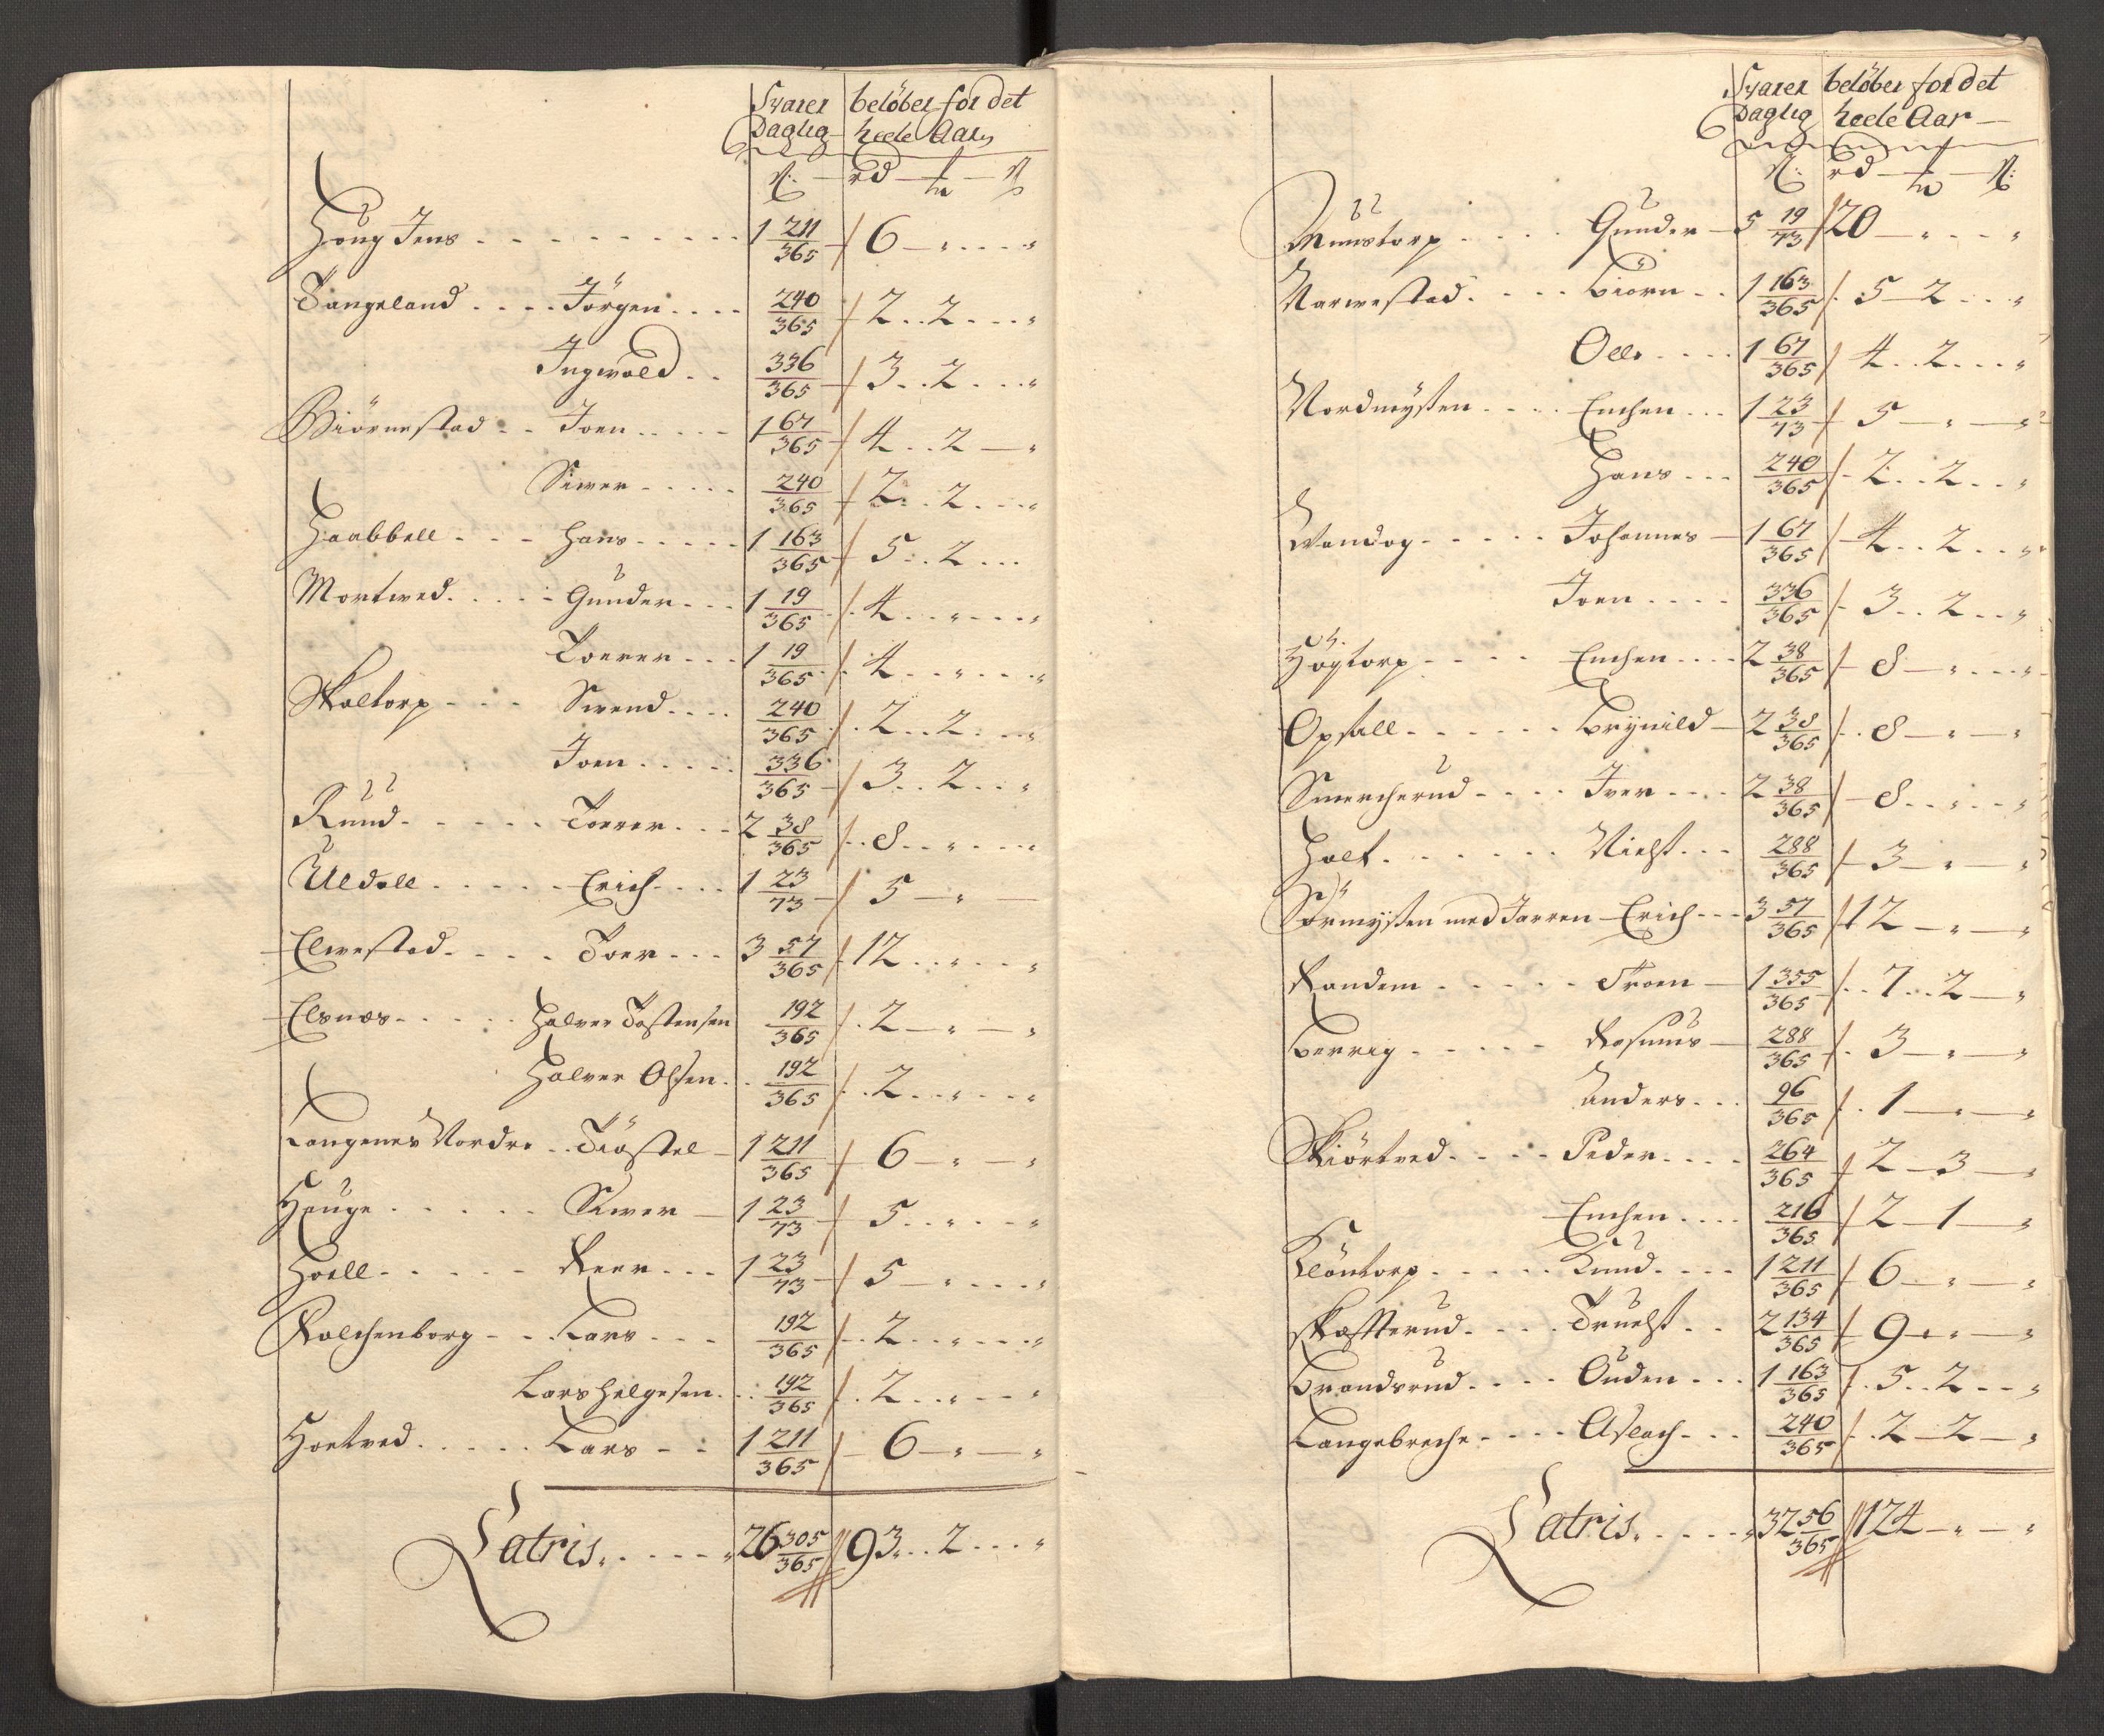 Svarer belöber for det
Daglig heele Aar
ß: rd ß
Houg Jens 1 211/365 6 " "
Tangeland Jörgen 240/365 2 2 "
Ingwold 336/365 3 2 "
Biörnestad Joen 1 67/365 4 2 "
Siwer 240/365 2 2 "
Haabbell Hans 1 163/365 5 2
Mortwed Gunder 1 19/365 4 " "
Torer 1 19/365 4 " "
Skoltorp Swend 240/365 2 2 "
Joen 336/365 3 2 "
Rund Torer 2 38/365 8 " "
Uldall Erich 1 23/73 5 "
Elwestad Toer 3 57/365 12 " "
Elsnæs Halvor Tostensen 192/365 2 " "
Halvor Olsen 192/365 2 " "
Langenes Nordre Kiöstel 1 211/365 6 " "
Houge Siwer 1 23/73 5 " "
Holl Reer 1 23/73 5 " "
Kolchenborg Lars 192/365 2 " "
Lars Helgesen 192/365 2 " "
Hoetved Lars 1 211/365 6 " "
Latris 26 305/365 93 2 "
Svarer belöber for det
Daglig heele Aar
ß: rd ß:
Munstorp Gunder 5 19/73 20 " "
Narwestad Biörn 1 163/365 5 2 "
Olle 1 67/365 4 2 "
Nordmysten Enchen 1 23/73 5 " "
Hans 240/365 2 2 "
Wandog Johannes 1 67/365 4 2 "
Joen 336/365 3 2 "
Högtorp Enchen 2 38/365 8 " "
Opsall Brynild 2 38/365 8 " "
Smercherud Iver 2 38/365 8 " "
Holt Nielss 288/365 3 " "
Sörmysten med Jarren Erich 3 57/365 12 " "
Randem Troen 1 355/365 7 2 "
Berrig Rasmus 288/365 3 " "
Anders 96/365 1 " "
Skiörtved Peder 264/365 2 3 "
Enchen 216/365 2 1 "
Klöntorp Knud 1 211/365 6 " "
Skofsterud Truelss 2 134/365 9 " "
Brandsrud Ouden 1 163/365 5 2 "
Langebreche Aslach 240/365 2 2 "
Latris 32 56/365 124 " "